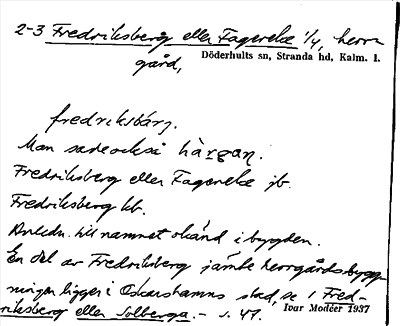 2-3 Fredriksberg eller Fagereke 1/4, herr-
gård,
Döderhults sn, Stranda hd, Kalm. l.
fredriksbärj.
Man sade också härgan.
Fredriksberg eller Fagereke jb.
Fredriksberg kb.
Anledn. till namnet okänd i bygden.
En del av Fredriksberg jämte herrgårdsbygg-
ningen ligger i Oskarshamns stad, se 1 Fred-
riksberg eller Solberga. – s. 47.
Ivar Modéer 1937